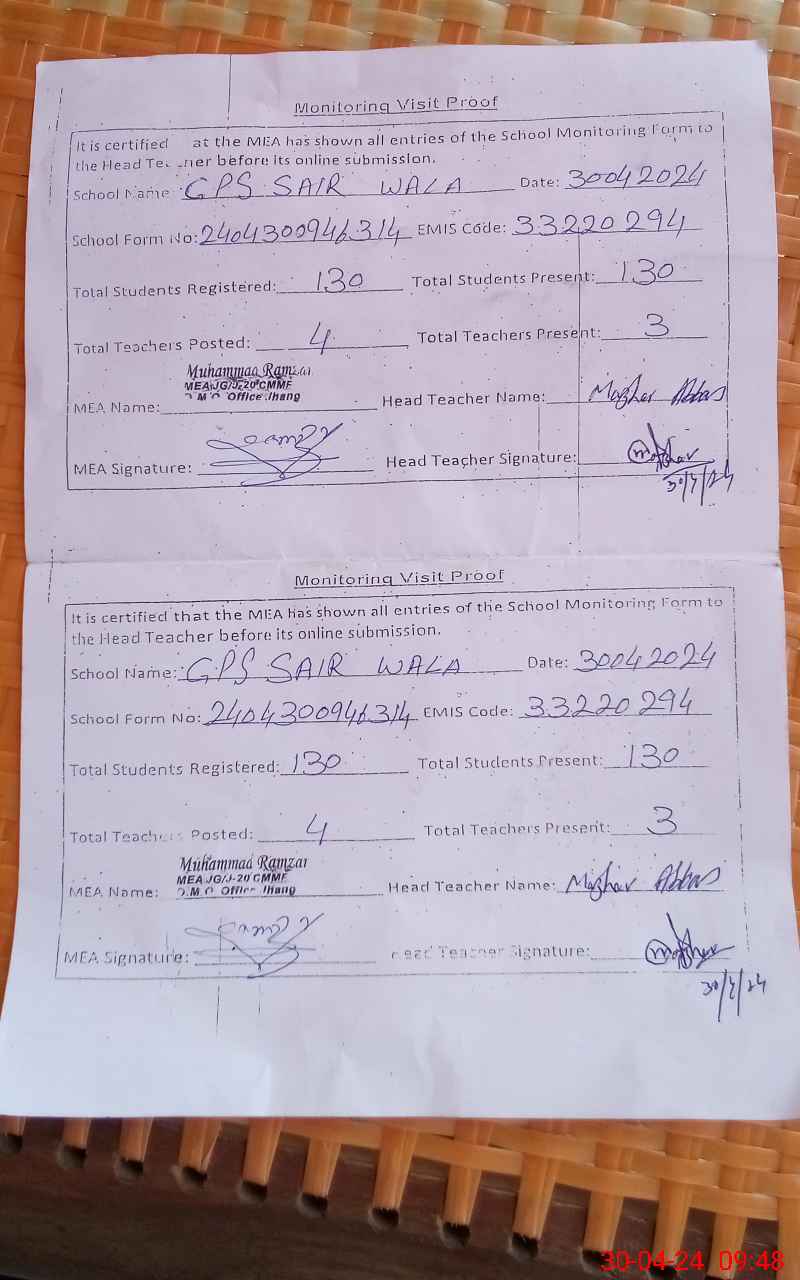 Monitoring Visit Proof
It is certified at the MEA has shown all entries of the School Monitoring Form to
the Head Teacher before its online submission.
School Name: GPS SAIR WALA Date: 30042024
School Form No: 2404300946314 EMIS Code: 33220294
Total Students Registered: 130 Total Students Present: 130
Total Teachers Posted: 4 Total Teachers Present: 3
Muhammad Ramzan
MEA JG/J-20 CMMF
D.M.O Office Jhang
MEA Name: Head Teacher Name: Mazhar Abbas
MEA Signature: Head Teacher Signature: Mazhar
30/4/24
Monitoring Visit Proof
It is certified that the MEA has shown all entries of the School Monitoring Form to
the Head Teacher before its online submission.
School Name: GPS SAIR WALA Date: 30042024
School Form No: 2404300946314 EMIS Code: 33220294
Total Students Registered: 130 Total Students Present: 130
Total Teachers Posted: 4 Total Teachers Present: 3
Muhammad Ramzan
MEA JG/J-20 CMMF
D.M.O Office Jhang
MEA Name: Head Teacher Name: Mazhar Abbas
MEA Signature: Head Teacher Signature: Mazhar
30/4/24
30-04-24 09:48